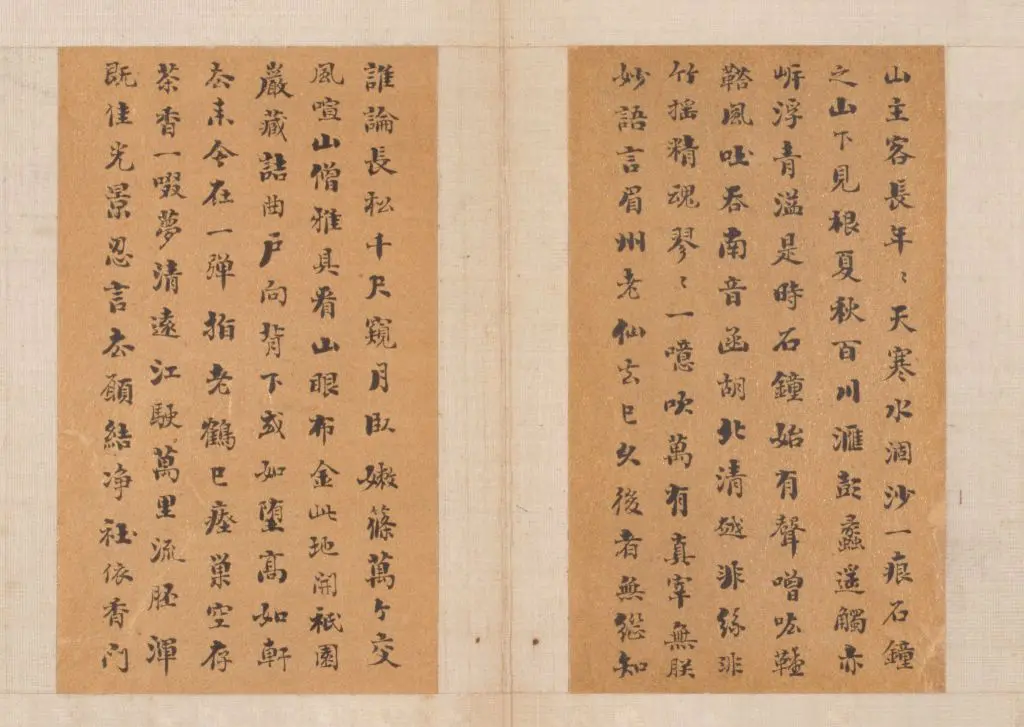 山主客長年〻天寒水涸沙一痕石鐘
之山下見根夏秋百川滙彭蠡遥觸亦
岸浮青溢是時石鐘始有聲噌吰鞺
鞳風吐吞南音函胡北清越非絲非
竹摇精魂翏〻一噫吹萬有真宰無朕
妙語言眉州老仙去已久後者無従知
誰論長松千尺窺月臥嫩篠萬个交
風喧山僧雅具看山眼布金此地開祇園
嚴藏詰曲戸向背下或如墮高如軒
去来今在一弾指老鶴已瘞巢空存
茶香一啜夢清遠江駛萬里流胚渾
既佳光景忍言去願結净社依香門